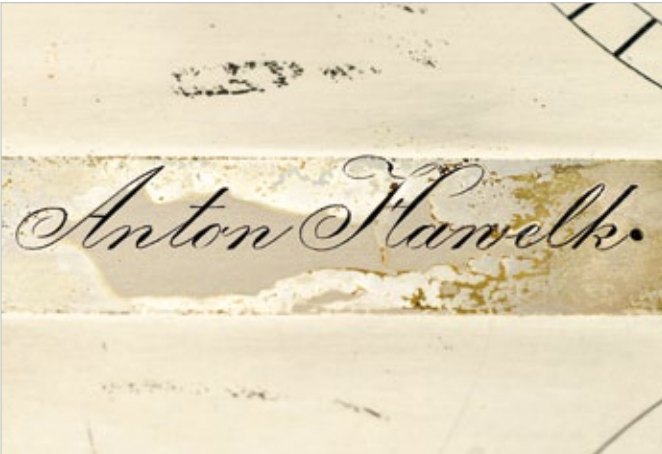 Anton Hawelk.